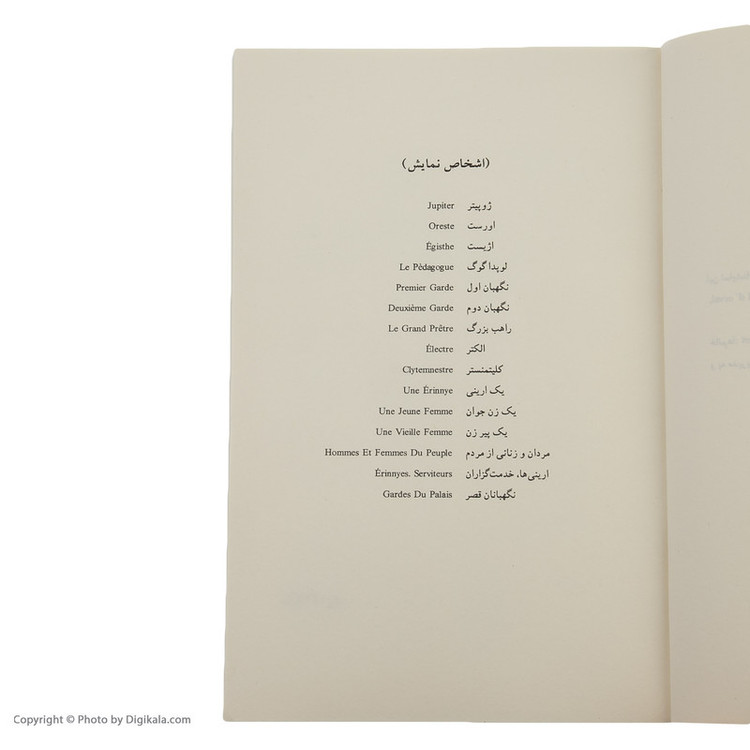 (اشخاص نمایش)
ژوپیتر Jupiter
اورست Oreste
اژیست Égisthe
لوپداگوگ Le Pèdagogue
نگهبان اول Premier Garde
نگهبان دوم Deuxième Garde
راهب بزرگ Le Grand Prêtre
الکتر Électre
کلیتمنستر Clytemnestre
یک ارینی Une Érinnye
یک زن جوان Une Jeune Femme
یک پیر زن Une Vieille Femme
مردان و زنانی از مردم Hommes Et Femmes Du Peuple
ارینی‌ها، خدمت‌گزاران Érinnyes. Serviteurs
نگهبانان قصر Gardes Du Palais
Copyright © Photo by Digikala.com